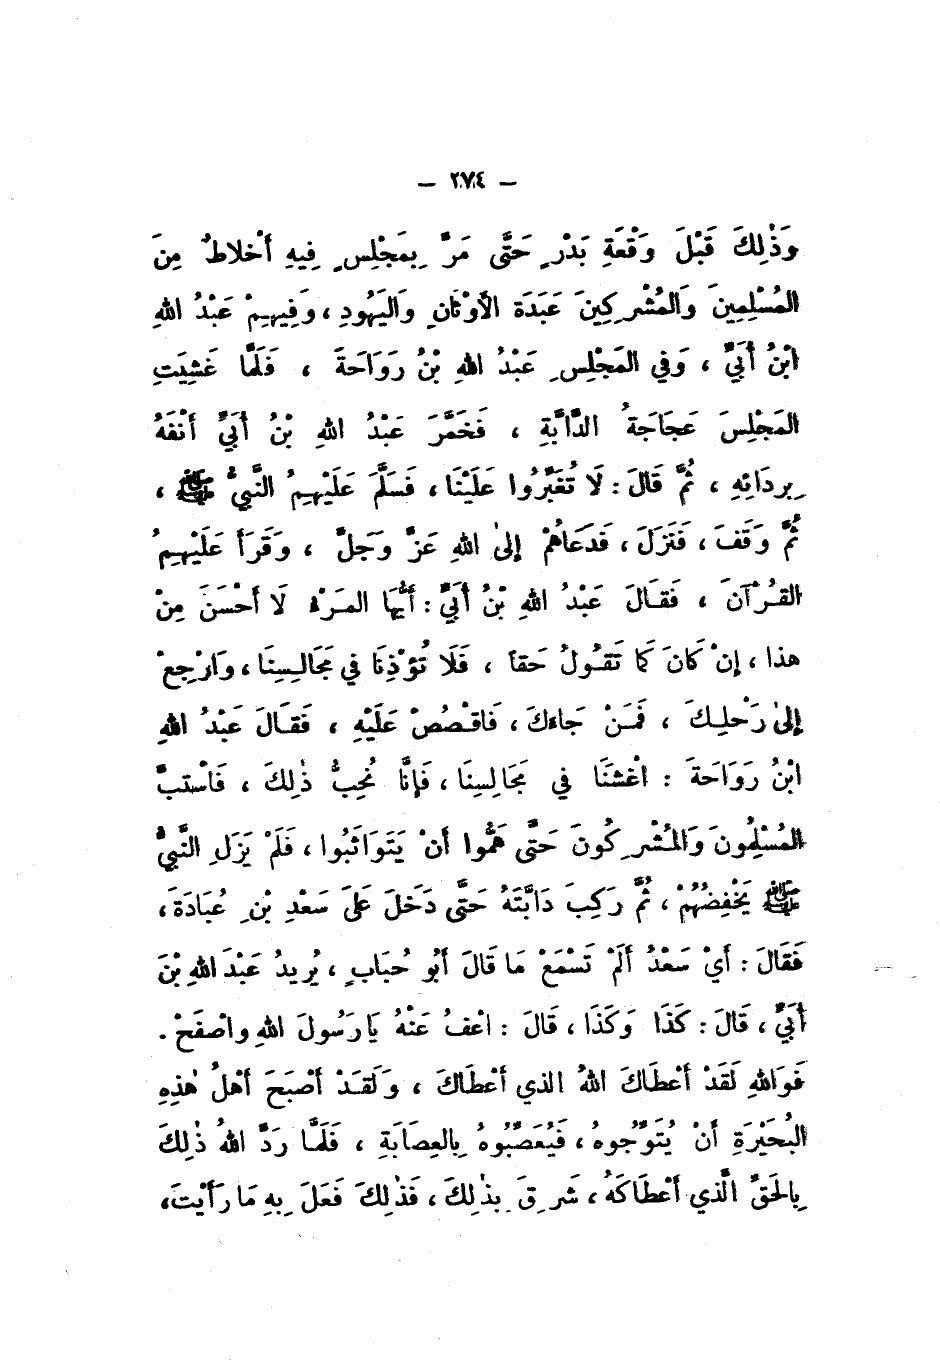 – ٢٧٤ –
وَذٰلِكَ قَبْلَ وَقْعَةِ بَدْرٍ حَتَّى مَرَّ بِمَجْلِسٍ فِيهِ أَخْلاطٌ مِنَ
المُسْلِمِينَ وَالمُشْرِكِينَ عَبَدَة الأَوْثَانِ وَاليَهُودِ ، وَفِيهِمْ عَبْدُ اللهِ
ابْنُ أُبَيٍّ ، وَفي المَجْلِسِ عَبْدُ اللهِ بْنُ رَوَاحَةَ ، فَلَمَّا غَشِيَتِ
المَجْلِسَ عَجَاجَةُ الدَّابَّةِ ، فَخَمَّرَ عَبْدُ اللهِ بْنُ أُبَيٍّ أَنْفَهُ
بِردَائِهِ ، ثُمَّ قَالَ : لَا تُغَبِّرُوا عَلَيْنَا ، فَسَلَّمَ عَلَيْهِمُ النَّبيُّ ﷺ ،
ثُمَّ وَقَفَ ، فَنَزَلَ ، فَدَعَاهُمْ إلىٰ اللهِ عَزَّ وَجَلَّ ، وَقَرَأَ عَلَيْهِمُ
القُرْآنَ ، فَقَالَ عَبْدُ اللهِ بْنُ أُبَيٍّ : أَيُّهَا المَرْءُ لَا أَحْسَنَ مِنْ
هذا ، إنْ كَانَ مَا تَقُولُ حَقاً ، فَلَا تُؤْذِنَا في مَجَالِسِنَا ، وَارْجِعْ
إلىٰ رَحْلِكَ ، فَمَنْ جَاءَكَ ، فَاقْصُصْ عَلَيْهِ ، فَقَالَ عَبْدُ اللهِ
ابْنُ رَوَاحَةَ : اغْشَنَا في مَجَالِسِنَا ، فَإنَّا نُحِبُّ ذٰلِكَ ، فَاسْتبَّ
المُسْلِمُونَ وَالمُشْرِكُونَ حَتَّى هَمُّوا أَنْ يَتَوَاثَبُوا ، فَلَمْ يَزَلِ النَّبيُّ
ﷺ يَخْفِضُهُمْ ، ثُمَّ رَكِبَ دَابَّتَهُ حَتَّى دَخَلَ عَلىَ سَعْدِ بْنِ عُبَادَةَ ،
فَقَالَ : أَيْ سَعْدُ أَلَمْ تَسْمَعْ مَا قَالَ أَبُو حُبَابٍ ، يُرِيدُ عَبْدَ اللهِ بْنَ
أُبَيٍّ ، قَالَ : كَذَا وَكَذَا ، قَالَ : اعْفُ عَنْهُ يَا رَسُولَ اللهِ واصْفَحْ .
فَوَاللهِ لَقَدْ أَعْطَاكَ اللهُ الذي أَعْطَاكَ ، وَلَقَدْ أَصْبَحَ أَهْلُ هٰذِهِ
البُحَيْرَةِ أَنْ يُتَوِّجُوهُ ، فَيُعَصِّبُوهُ بِالعِصَابَةِ ، فَلَمَّا رَدَّ اللهُ ذٰلِكَ
بِالحَقِّ الَّذي أَعْطَاكَهُ ، شَرِقَ بِذٰلِكَ ، فَذٰلِكَ فَعَلَ بِهِ مَا رَأَيْتَ ،